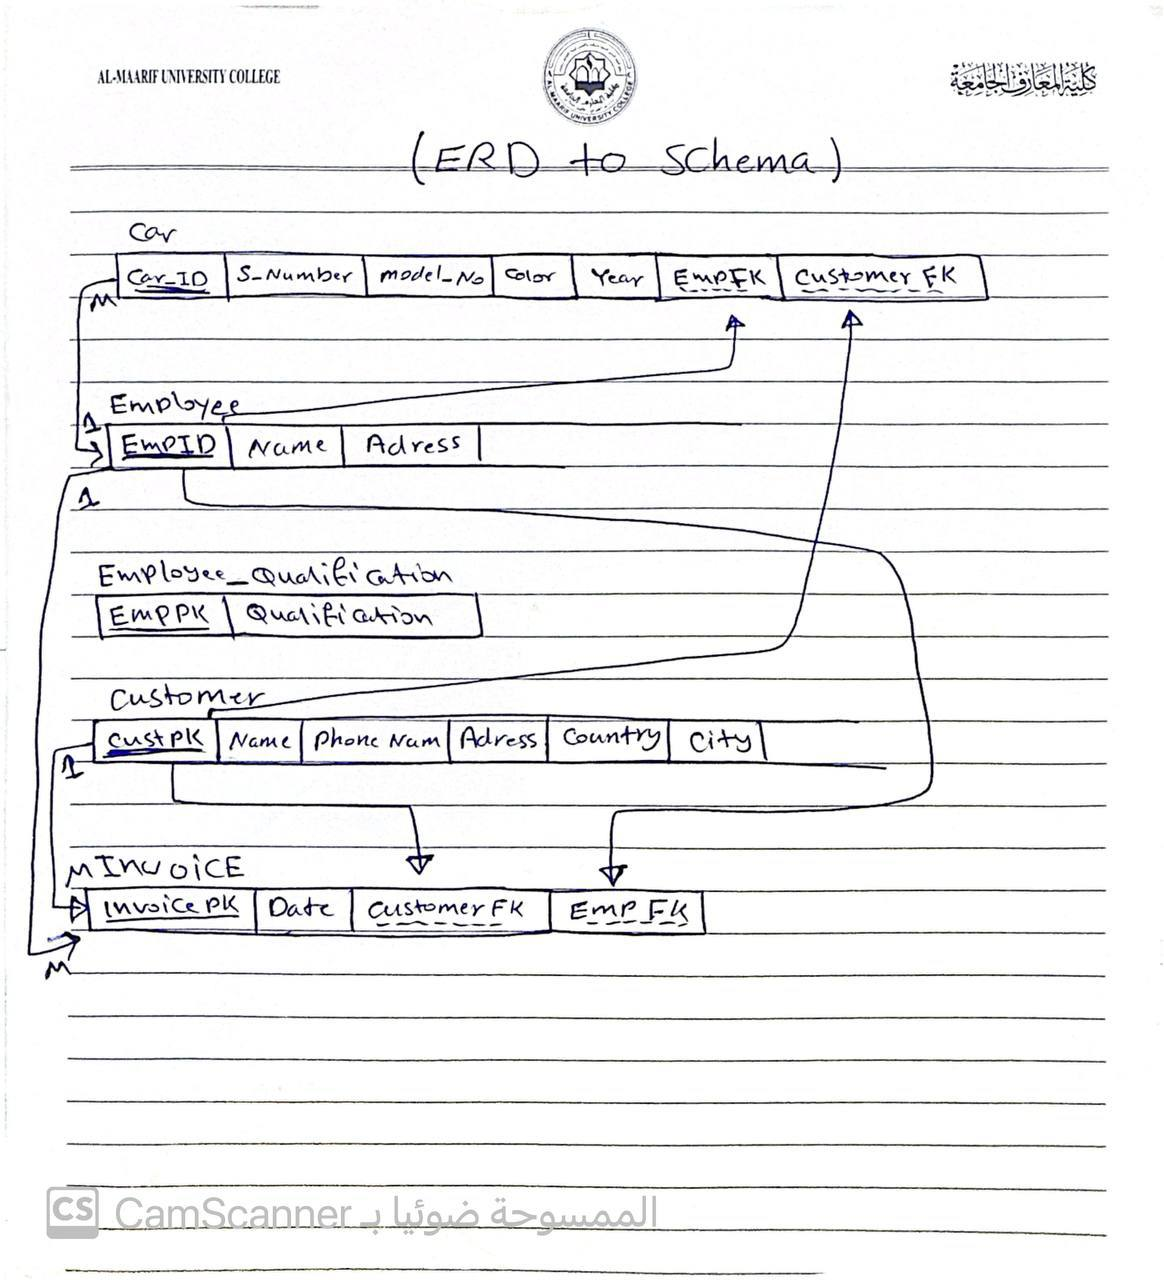 AL-MAARIF UNIVERSITY COLLEGE
كلية المعارف الجامعة
AL MAARIF UNIVERSITY COLLEGE
(ERD to Schema)
Car
Car_ID S_Number model_No Color Year EmpFK Customer FK
M
Employee
1
EmpID Name Adress
1
Employee_Qualification
EmpPK Qualification
Customer
CustPK Name Phone Num Adress Country City
1
M Invoice
Invoice PK Date Customer FK Emp FK
M
CS CamScanner الممسوحة ضوئيا بـ